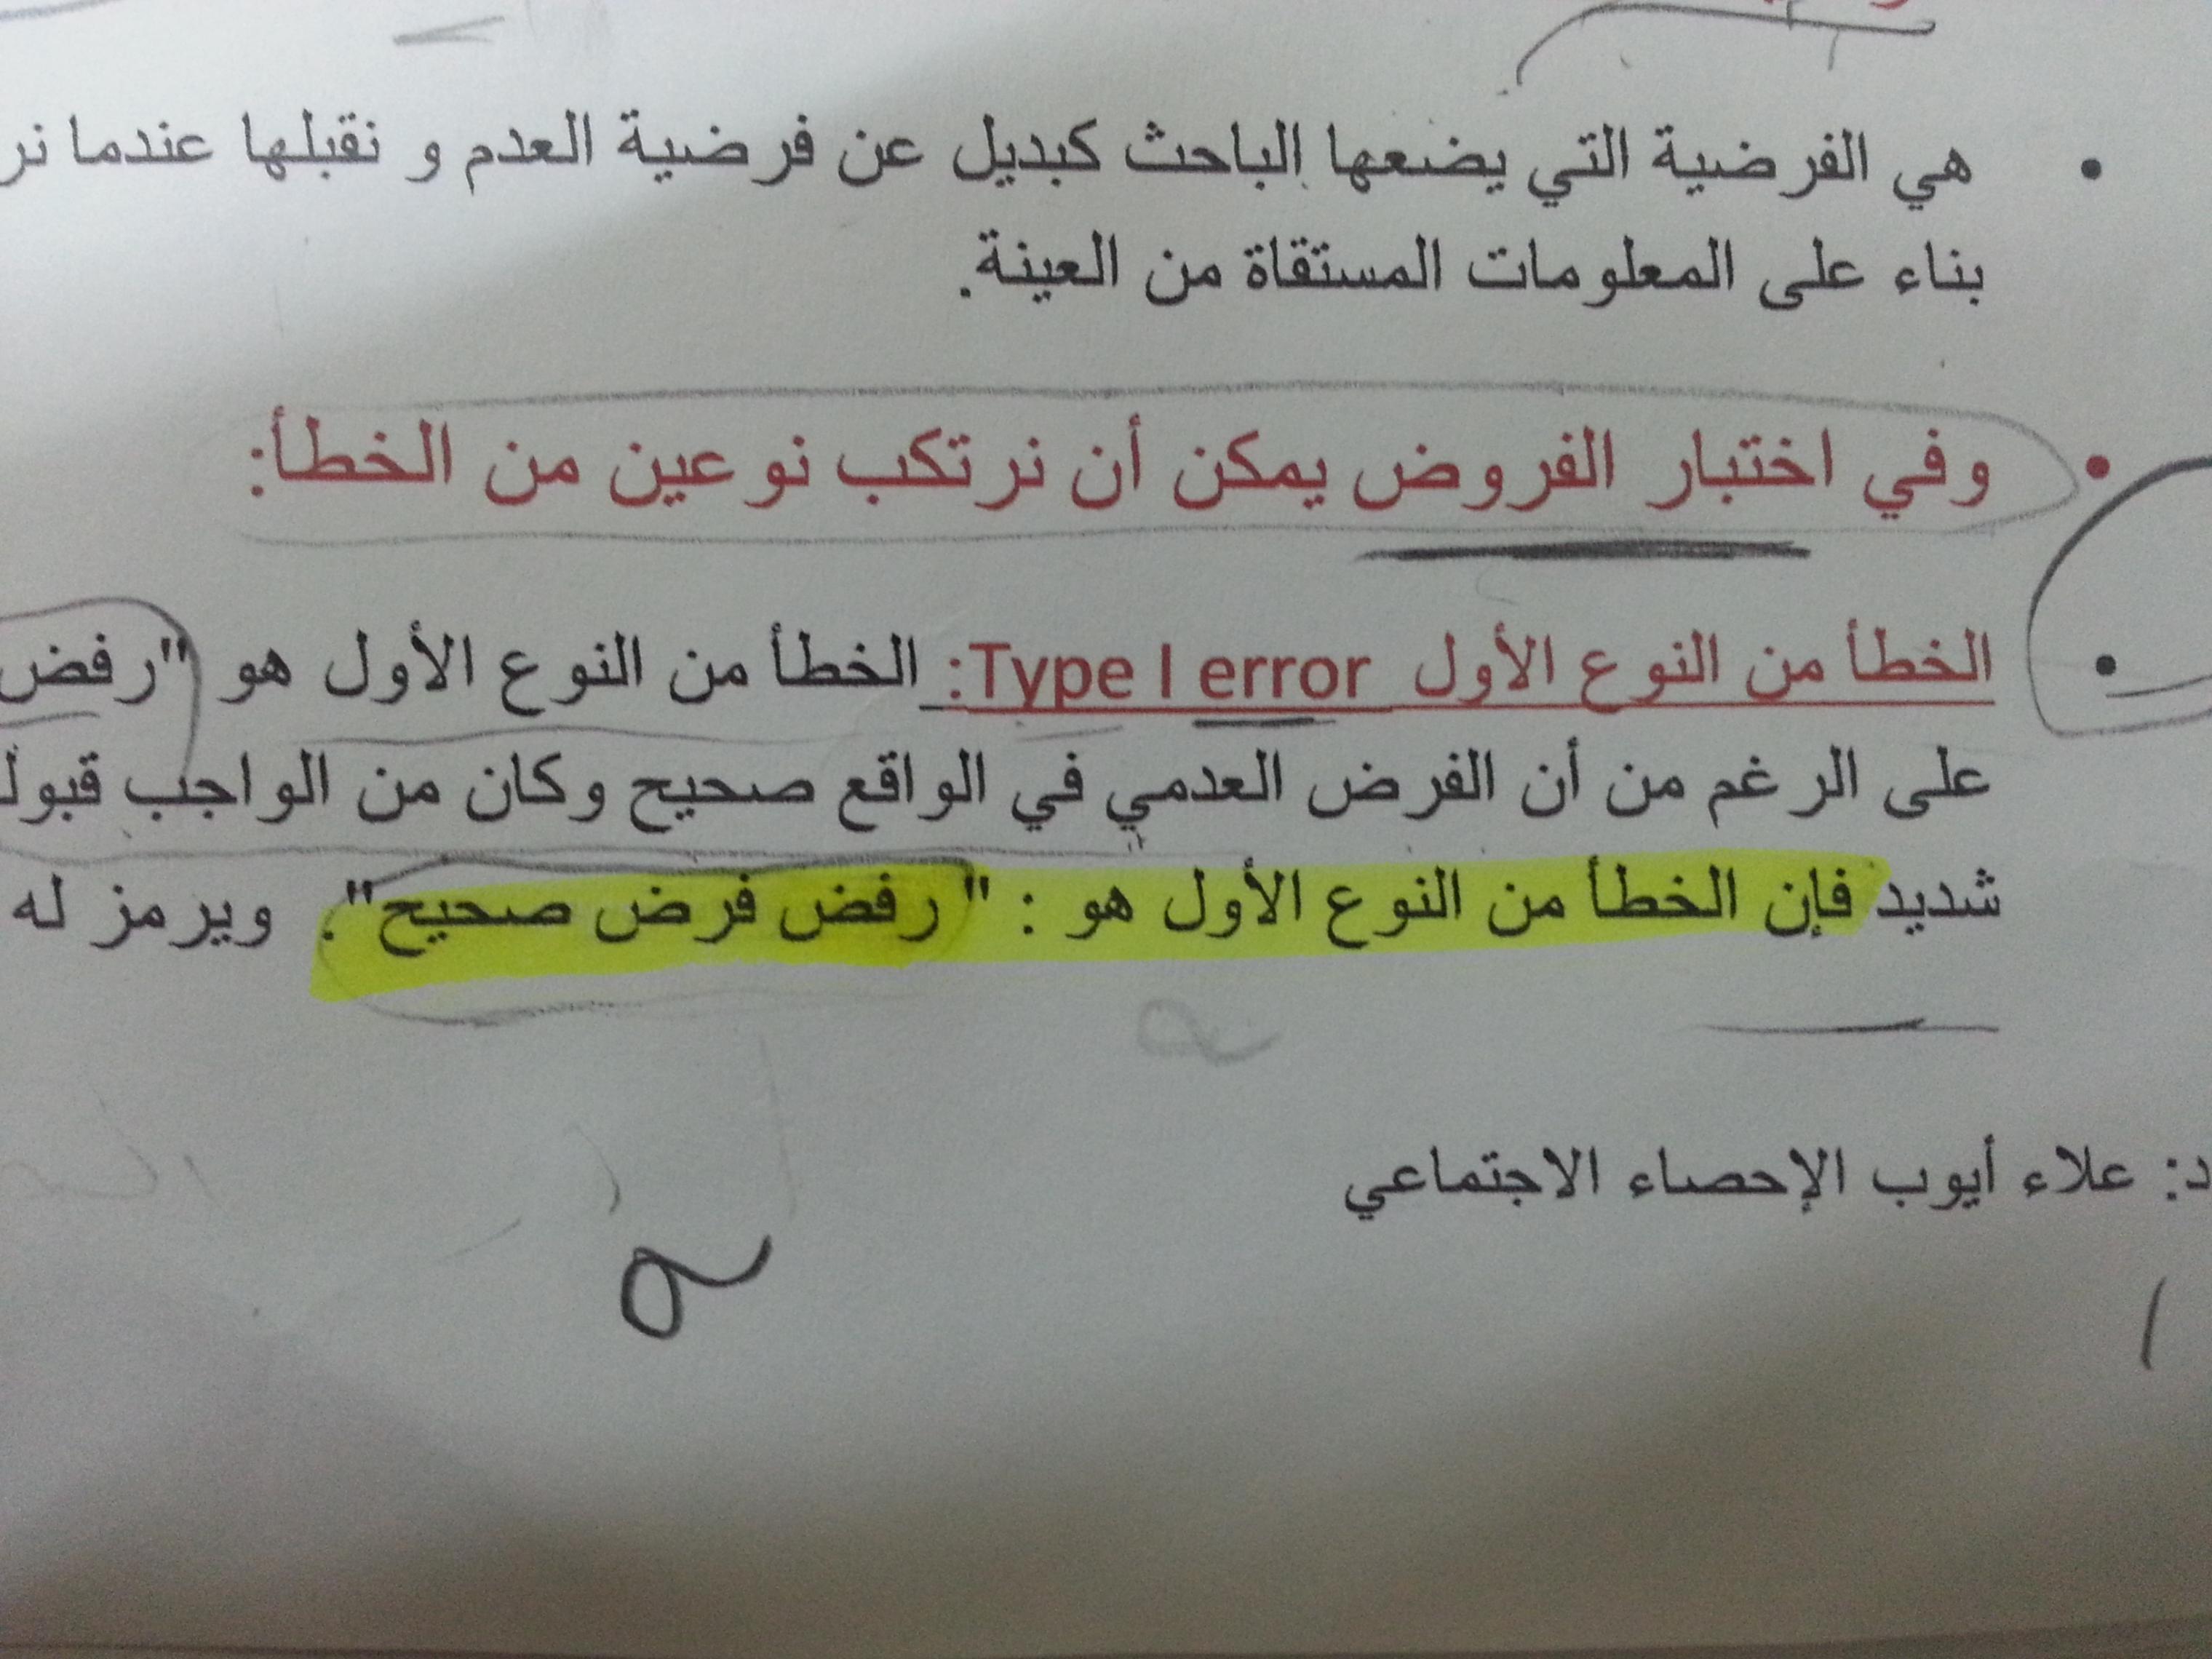 هي الفرضية التي يضعها الباحث كبديل عن فرضية العدم و نقبلها عندما نر
بناء على المعلومات المستقاة من العينة.
وفي اختبار الفروض يمكن أن نرتكب نوعين من الخطأ:
الخطأ من النوع الأول Type I error: الخطأ من النوع الأول هو "رفض
على الرغم من أن الفرض العدمي في الواقع صحيح وكان من الواجب قبول
شديد فإن الخطأ من النوع الأول هو : " رفض فرض صحيح". ويرمز له
د: علاء أيوب الإحصاء الاجتماعي